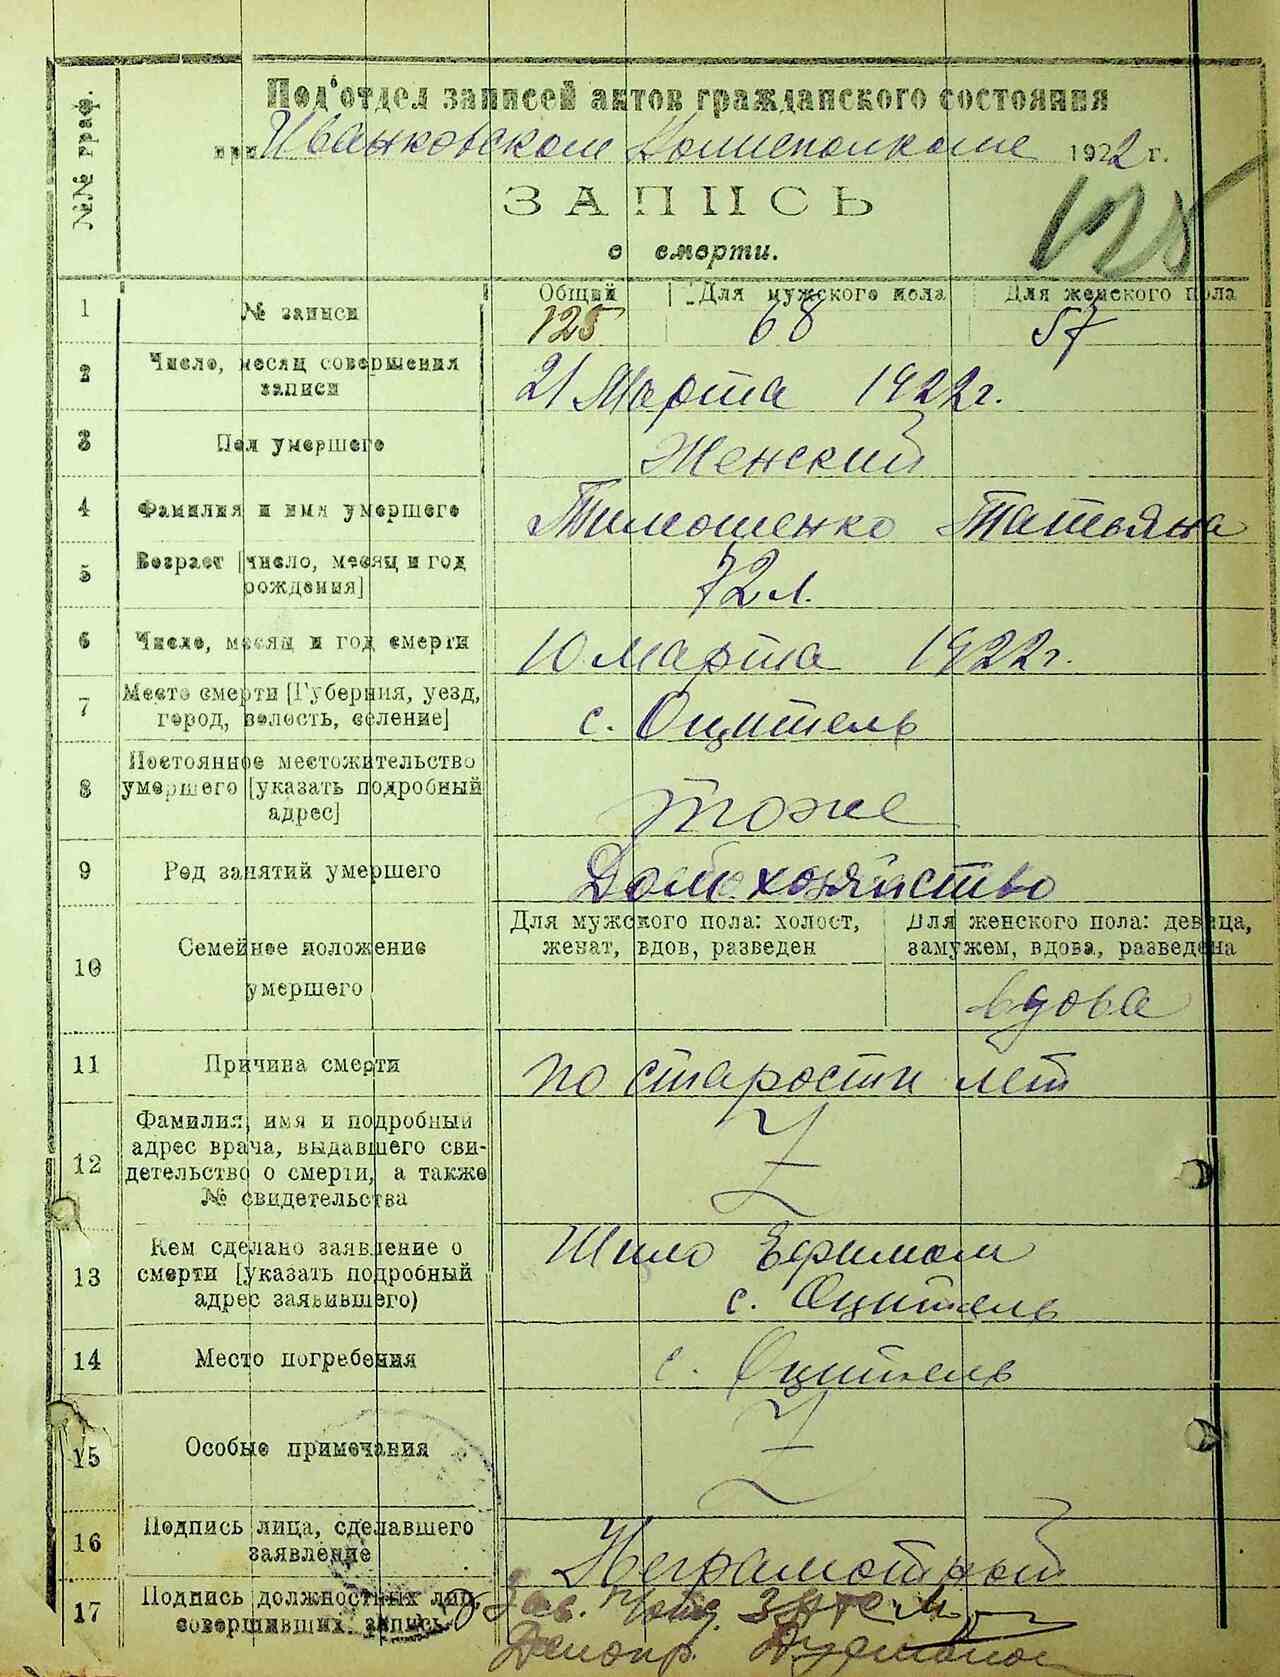 №№ граф.
Под'отдел записей актов гражданского состояния
при Иванковском Волисполкоме 1922 г.
ЗАПИСЬ
о смерти.
125
Общий Для мужского пола Для женского пола
1 № записи 125 68 57
2 Число, месяц совершения
записи 21 Марта 1922 г.
3 Пол умершего Женский
4 Фамилия и имя умершего Тимошенко Татьяна
5 Возраст [число, месяц и год
рождения] 72 л.
6 Число, месяц и год смерти 10 марта 1922 г.
7 Место смерти [Губерния, уезд,
город, волость, селение] с. Оцитель
8 Постоянное местожительство
умершего [указать подробный
адрес] тоже
9 Род занятий умершего Домохозяйство
10 Семейное положение
умершего
Для мужского пола: холост,
женат, вдов, разведен
Для женского пола: девица,
замужем, вдова, разведена
вдова
11 Причина смерти по старости лет
12 Фамилия, имя и подробный
адрес врача, выдавшего сви-
детельство о смерти, а также
№ свидетельства
13 Кем сделано заявление о
смерти [указать подробный
адрес заявившего)
Шило Ефимом
с. Оцитель
14 Место погребения с. Оцитель
15 Особые примечания
16 Подпись лица, сделавшего
заявление Неграмотный
17 Подпись должностных лиц,
совершивших запись
Зав.
Делопр.